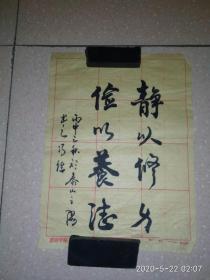 静以修身
俭以养德
丙申之秋於泰山之阳
2020-5-22 02:07